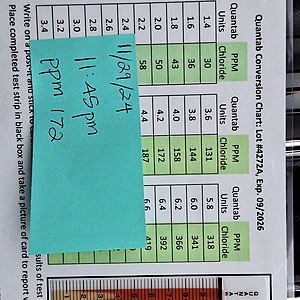 Quantab Conversion Chart: Lot #4272A, Exp. 09/2026
Quantab Units PPM Chloride Quantab Units PPM Chloride Quantab Units PPM Chloride
1.4 30 3.6 131 5.8 318
1.6 36 3.8 144 6.0 341
1.8 43 4.0 158 6.2 366
2.0 50 4.2 172 6.4 392
2.2 58 4.4 187 6.6 419
2.4
2.6
2.8
3.0
3.2
3.4
11/29/24
11:45pm
ppm 172
Write on a post-it and stick to
Place completed test strip in black box and take a picture of card to report
sults of test
QUANTAB